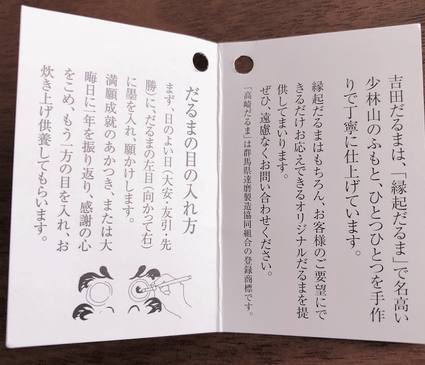 吉田だるまは、「縁起だるま」で名高い
少林山のふもと、ひとつひとつを手作
りで丁寧に仕上げています。
縁起だるまはもちろん、お客様のご要望にで
きるだけお応えできるオリジナルだるまを提
供してまいります。
ぜひ、遠慮なくお問い合わせください。
「高崎だるま」は群馬県達磨製造協同組合の登録商標です。
だるまの目の入れ方
まず、日のよい日(大安・友引・先
勝)に、だるまの左目(向かって右)
に墨を入れ、願かけします。
満願成就のあかつき、または大
晦日に一年を振り返り、感謝の心
をこめ、もう一方の目を入れ、お
炊き上げ供養してもらいます。